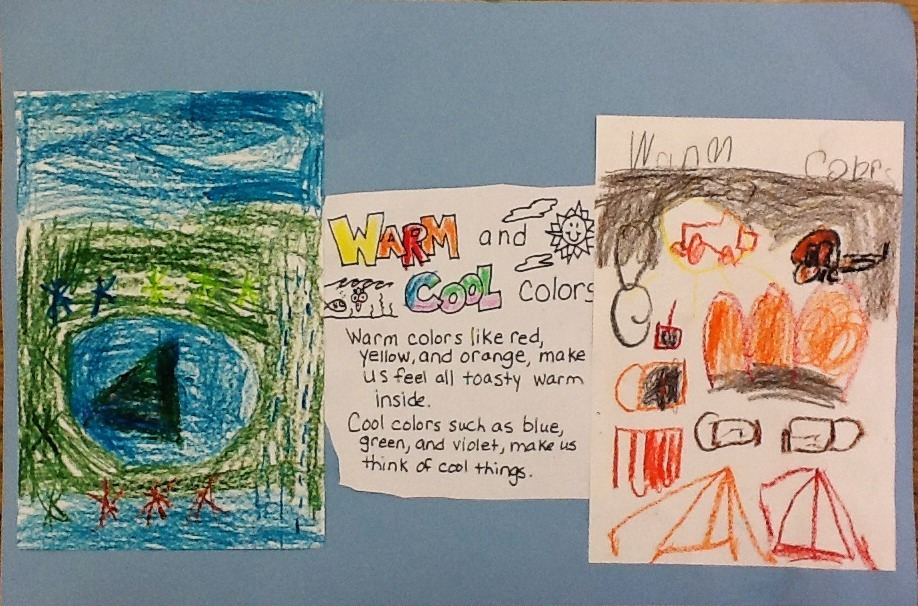 WARM and
COOL Colors
Warm colors like red,
yellow, and orange, make
us feel all toasty warm
inside.
Cool colors such as blue,
green, and violet, make us
think of cool things.
Warm Colors